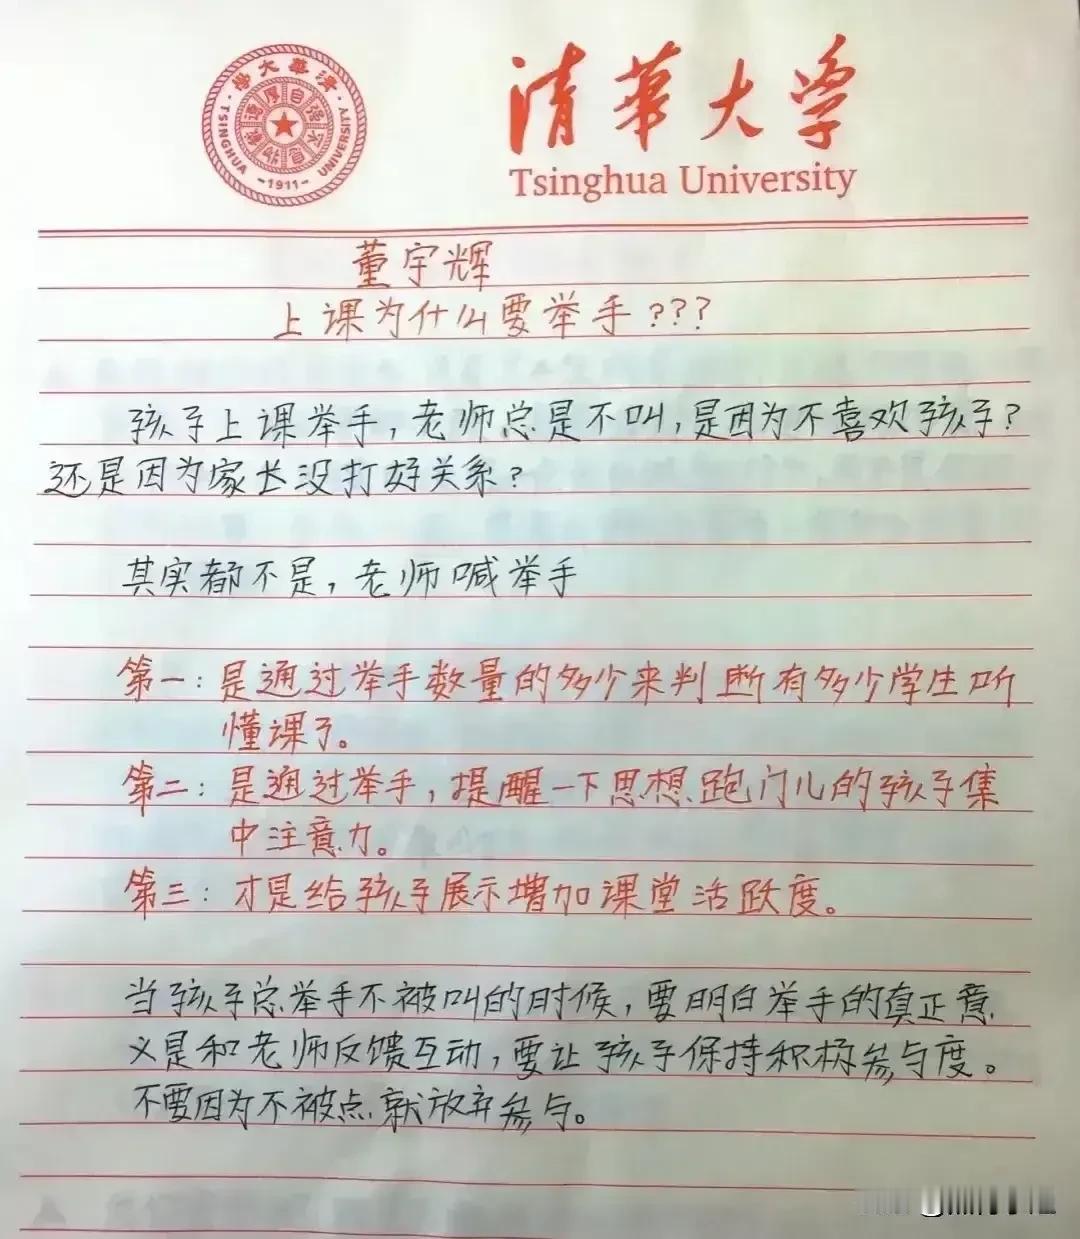 清華大学
Tsinghua University
清華大學
TSINGHUA UNIVERSITY
自强不息
厚德載物
-1911-
董宇辉
上课为什么要举手???
孩子上课举手,老师总是不叫,是因为不喜欢孩子?
还是因为家长没打好关系?
其实都不是,老师喊举手
第一:是通过举手数量的多少来判断有多少学生听
懂课了。
第二:是通过举手,提醒一下思想跑门儿的孩子集
中注意力。
第三:才是给孩子展示增加课堂活跃度。
当孩子总举手不被叫的时候,要明白举手的真正意
义是和老师反馈互动,要让孩子保持积极参与度。
不要因为不被点就放弃参与。